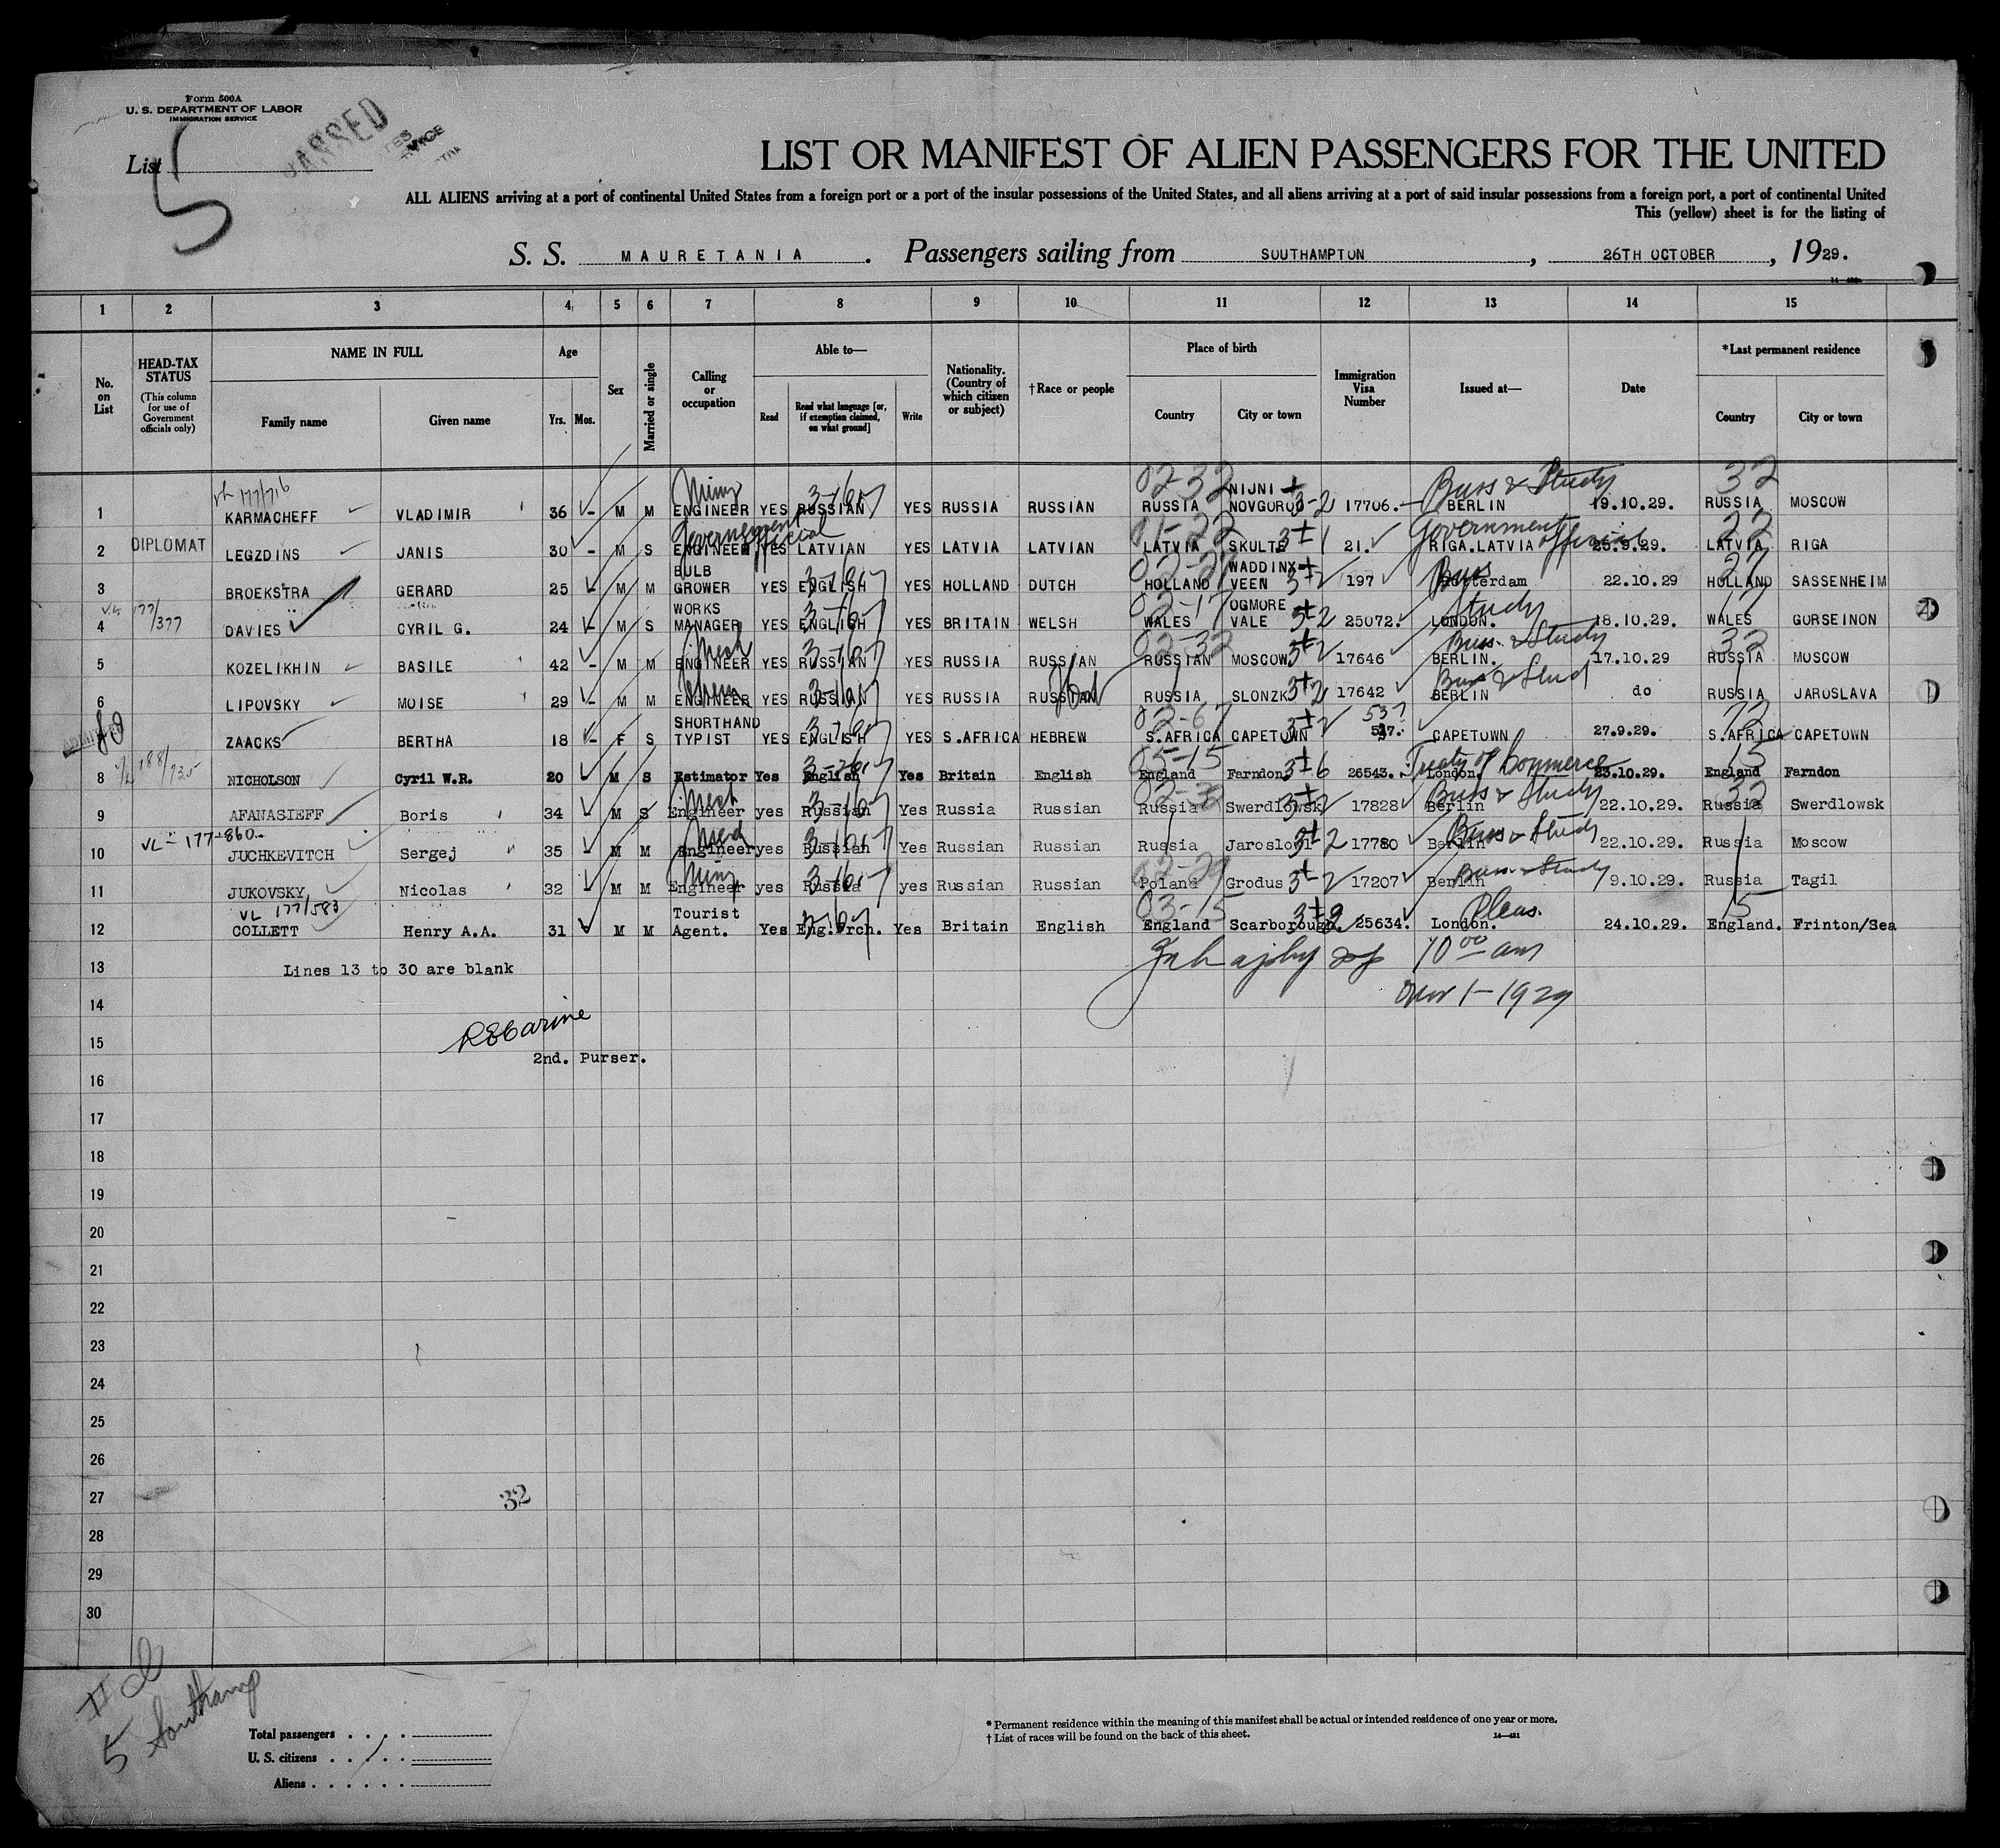 Form 500A
U. S. DEPARTMENT OF LABOR
IMMIGRATION SERVICE
PASSED
List 5
LIST OR MANIFEST OF ALIEN PASSENGERS FOR THE UNITED
ALL ALIENS arriving at a port of continental United States from a foreign port or a port of the insular possessions of the United States, and all aliens arriving at a port of said insular possessions from a foreign port, a port of continental United
This (yellow) sheet is for the listing of
S. S. MAURETANIA. Passengers sailing from SOUTHAMPTON, 26TH OCTOBER, 1929.
1 2 3 4 5 6 7 8 9 10 11 12 13 14 15
No. on List
HEAD-TAX STATUS
(This column for use of Government officials only)
NAME IN FULL
Family name Given name
Age
Yrs. Mos.
Sex
Married or single
Calling or occupation
Able to—
Read Read what language [or, if exemption claimed, on what ground] Write
Nationality. (Country of which citizen or subject)
†Race or people
Place of birth
Country City or town
Immigration Visa Number
Issued at—
Date
*Last permanent residence
Country City or town
177/716 02-32 Buss & Study 32
1 KARMACHEFF VLADIMIR 36 - M M ENGINEER YES RUSSIAN YES RUSSIA RUSSIAN RUSSIA NIJNI NOVGOROD 17706. BERLIN 19.10.29. RUSSIA MOSCOW
Government official 01-22 Government official 22
2 DIPLOMAT LEGZDINS JANIS 30 - M S ENGINEER YES LATVIAN YES LATVIA LATVIAN LATVIA SKULTE 21. RIGA.LATVIA 25.9.29. LATVIA RIGA
Buss
3 BROEKSTRA GERARD 25 - M M BULB GROWER YES ENGLISH YES HOLLAND DUTCH HOLLAND WADDINX VEEN 197 Rotterdam 22.10.29 HOLLAND SASSENHEIM
177/377 02-17 Study 17
4 DAVIES CYRIL G. 24 - M S WORKS MANAGER YES ENGLISH YES BRITAIN WELSH WALES OGMORE VALE 25072. LONDON. 18.10.29. WALES GORSEINON
Mech 02-32 Buss & Study 32
5 KOZELIKHIN BASILE 42 - M M ENGINEER YES RUSSIAN YES RUSSIA RUSSIAN RUSSIAN MOSCOW 17646 BERLIN. 17.10.29 RUSSIA MOSCOW
Buss & Stud
6 LIPOVSKY MOISE 29 - M M ENGINEER YES RUSSIAN YES RUSSIA RUSSIAN RUSSIA SLONZK 17642 BERLIN do RUSSIA JAROSLAVA
02-67 537 72
ZAACKS BERTHA 18 - F S SHORTHAND TYPIST YES ENGLISH YES S.AFRICA HEBREW S.AFRICA CAPETOWN CAPETOWN 27.9.29. S.AFRICA CAPETOWN
188/735 05-15 Treaty of Commerce 15
8 NICHOLSON Cyril W.R. 20 M S Estimator Yes English Yes Britain English England Farndon 26543. London. 23.10.29. England Farndon
Buss & Study 32
9 AFANASIEFF Boris 34 M S Engineer yes Russian Yes Russia Russian Russia Swerdlowsk 17828 Berlin 22.10.29. Russia Swerdlowsk
VL - 177-860 Buss & Study
10 JUCHKEVITCH Sergej 35 - M M Engineer yes Russian Yes Russian Russian Russia 17780 Berlin 22.10.29. Russia Moscow
02-29 Buss & Study
11 JUKOVSKY Nicolas 32 M M Engineer yes Russia yes Russian Russian Poland Grodus 17207 Berlin 9.10.29. Russia Tagil
VL 177/583 03-15 Pleas. 15
12 COLLETT Henry A.A. 31 M M Tourist Agent. Yes Eng.Frch. Yes Britain English England Scarborough. 25634. London. 24.10.29. England. Frinton/Sea
13 Lines 13 to 30 are blank
10 00 am
14 Nov 1-1929
15
2nd. Purser.
16
17
18
19
20
21
22
23
24
25
26
27 32
28
29
30
5 Southamp
Total passengers
U. S. citizens
Aliens
* Permanent residence within the meaning of this manifest shall be actual or intended residence of one year or more.
† List of races will be found on the back of this sheet.